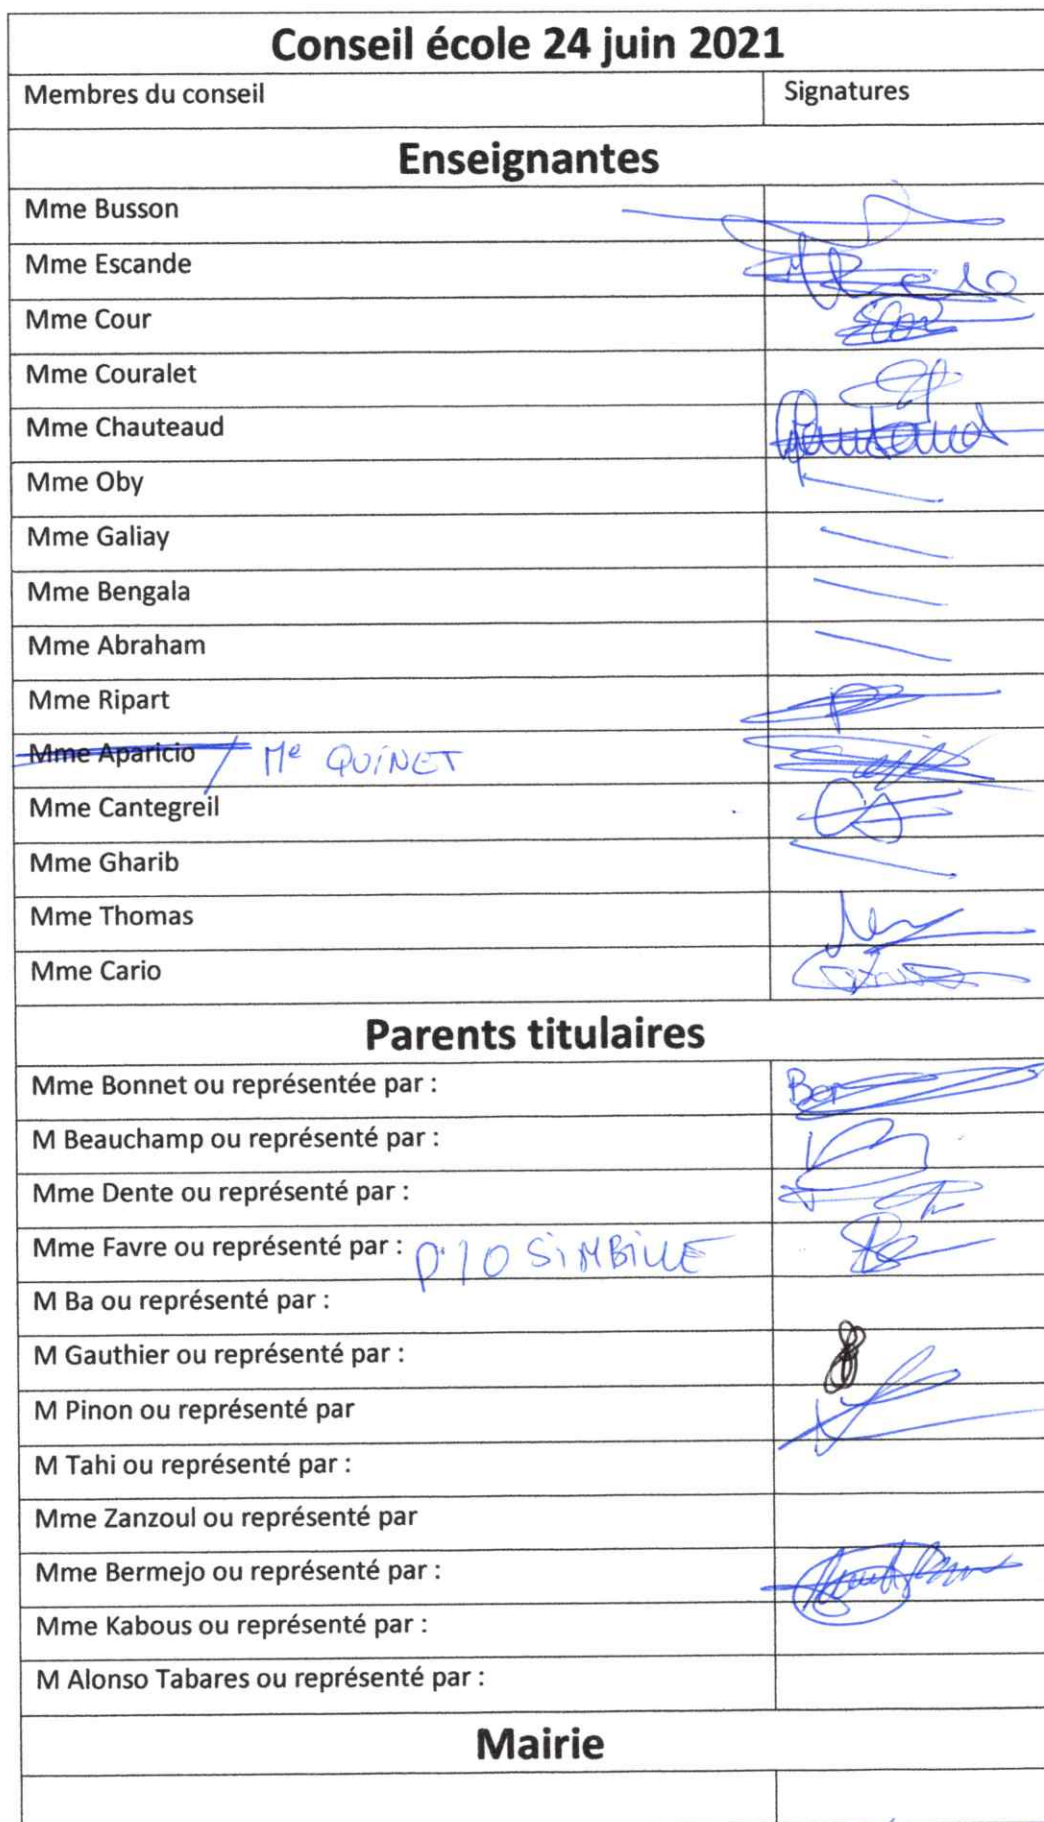 Conseil école 24 juin 2021
Membres du conseil Signatures
Enseignantes
Mme Busson
Mme Escande
Mme Cour
Mme Couralet
Mme Chauteaud
Mme Oby
Mme Galiay
Mme Bengala
Mme Abraham
Mme Ripart
Mme Aparicio / Me QUINET
Mme Cantegreil
Mme Gharib
Mme Thomas
Mme Cario
Parents titulaires
Mme Bonnet ou représentée par :
M Beauchamp ou représenté par :
Mme Dente ou représenté par :
Mme Favre ou représenté par : P/O SIMBILLE
M Ba ou représenté par :
M Gauthier ou représenté par :
M Pinon ou représenté par
M Tahi ou représenté par :
Mme Zanzoul ou représenté par
Mme Bermejo ou représenté par :
Mme Kabous ou représenté par :
M Alonso Tabares ou représenté par :
Mairie